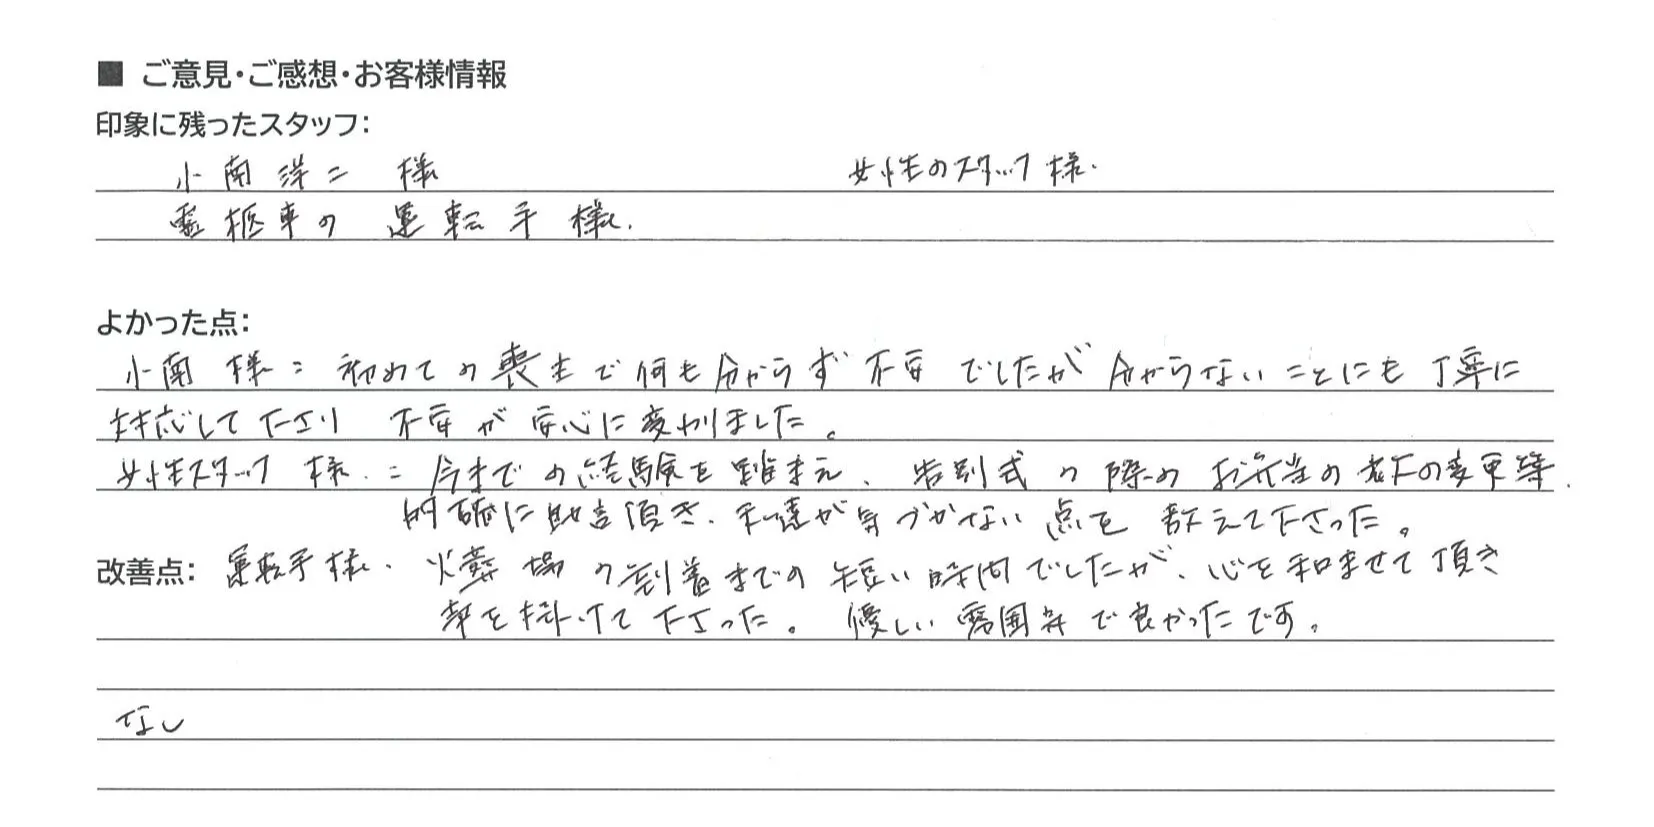 ■ ご意見・ご感想・お客様情報
印象に残ったスタッフ：
小南洋二 様 女性のスタッフ様.
霊柩車の 運転手様.
よかった点：
小南様：初めての喪主で何も分からず不安でしたが分からないことにも丁寧に
対応して下さり 不安が安心に変わりました。
女性スタッフ様：今までの経験を踏まえ、告別式の際のお弁当の数の変更等、
的確に助言頂き、私達が気づかない点を教えて下さった。
改善点： 運転手様、火葬場の到着までの短い時間でしたが、心を和ませて頂き
声を掛けて下さった。優しい雰囲気で良かったです。
なし